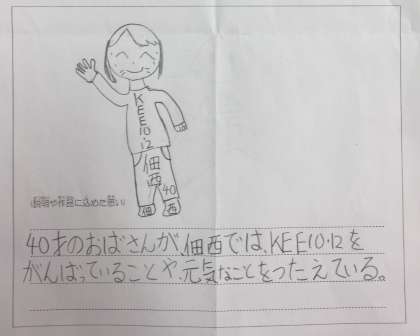 KEE10・12
佃西
40
佃
西
説明や作品に込めた思い
40才のおばさんが、佃西では、KEE10・12を
がんばっていることや、元気なことをつたえている。